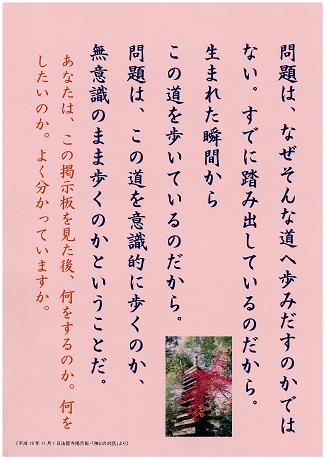 問題は、なぜそんな道へ歩みだすのかでは
ない。すでに踏み出しているのだから。
生まれた瞬間から
この道を歩いているのだから。
問題は、この道を意識的に歩くのか、
無意識のまま歩くのかということだ。
あなたは、この掲示板を見た後、何をするのか。何を
したいのか。よく分かっていますか。